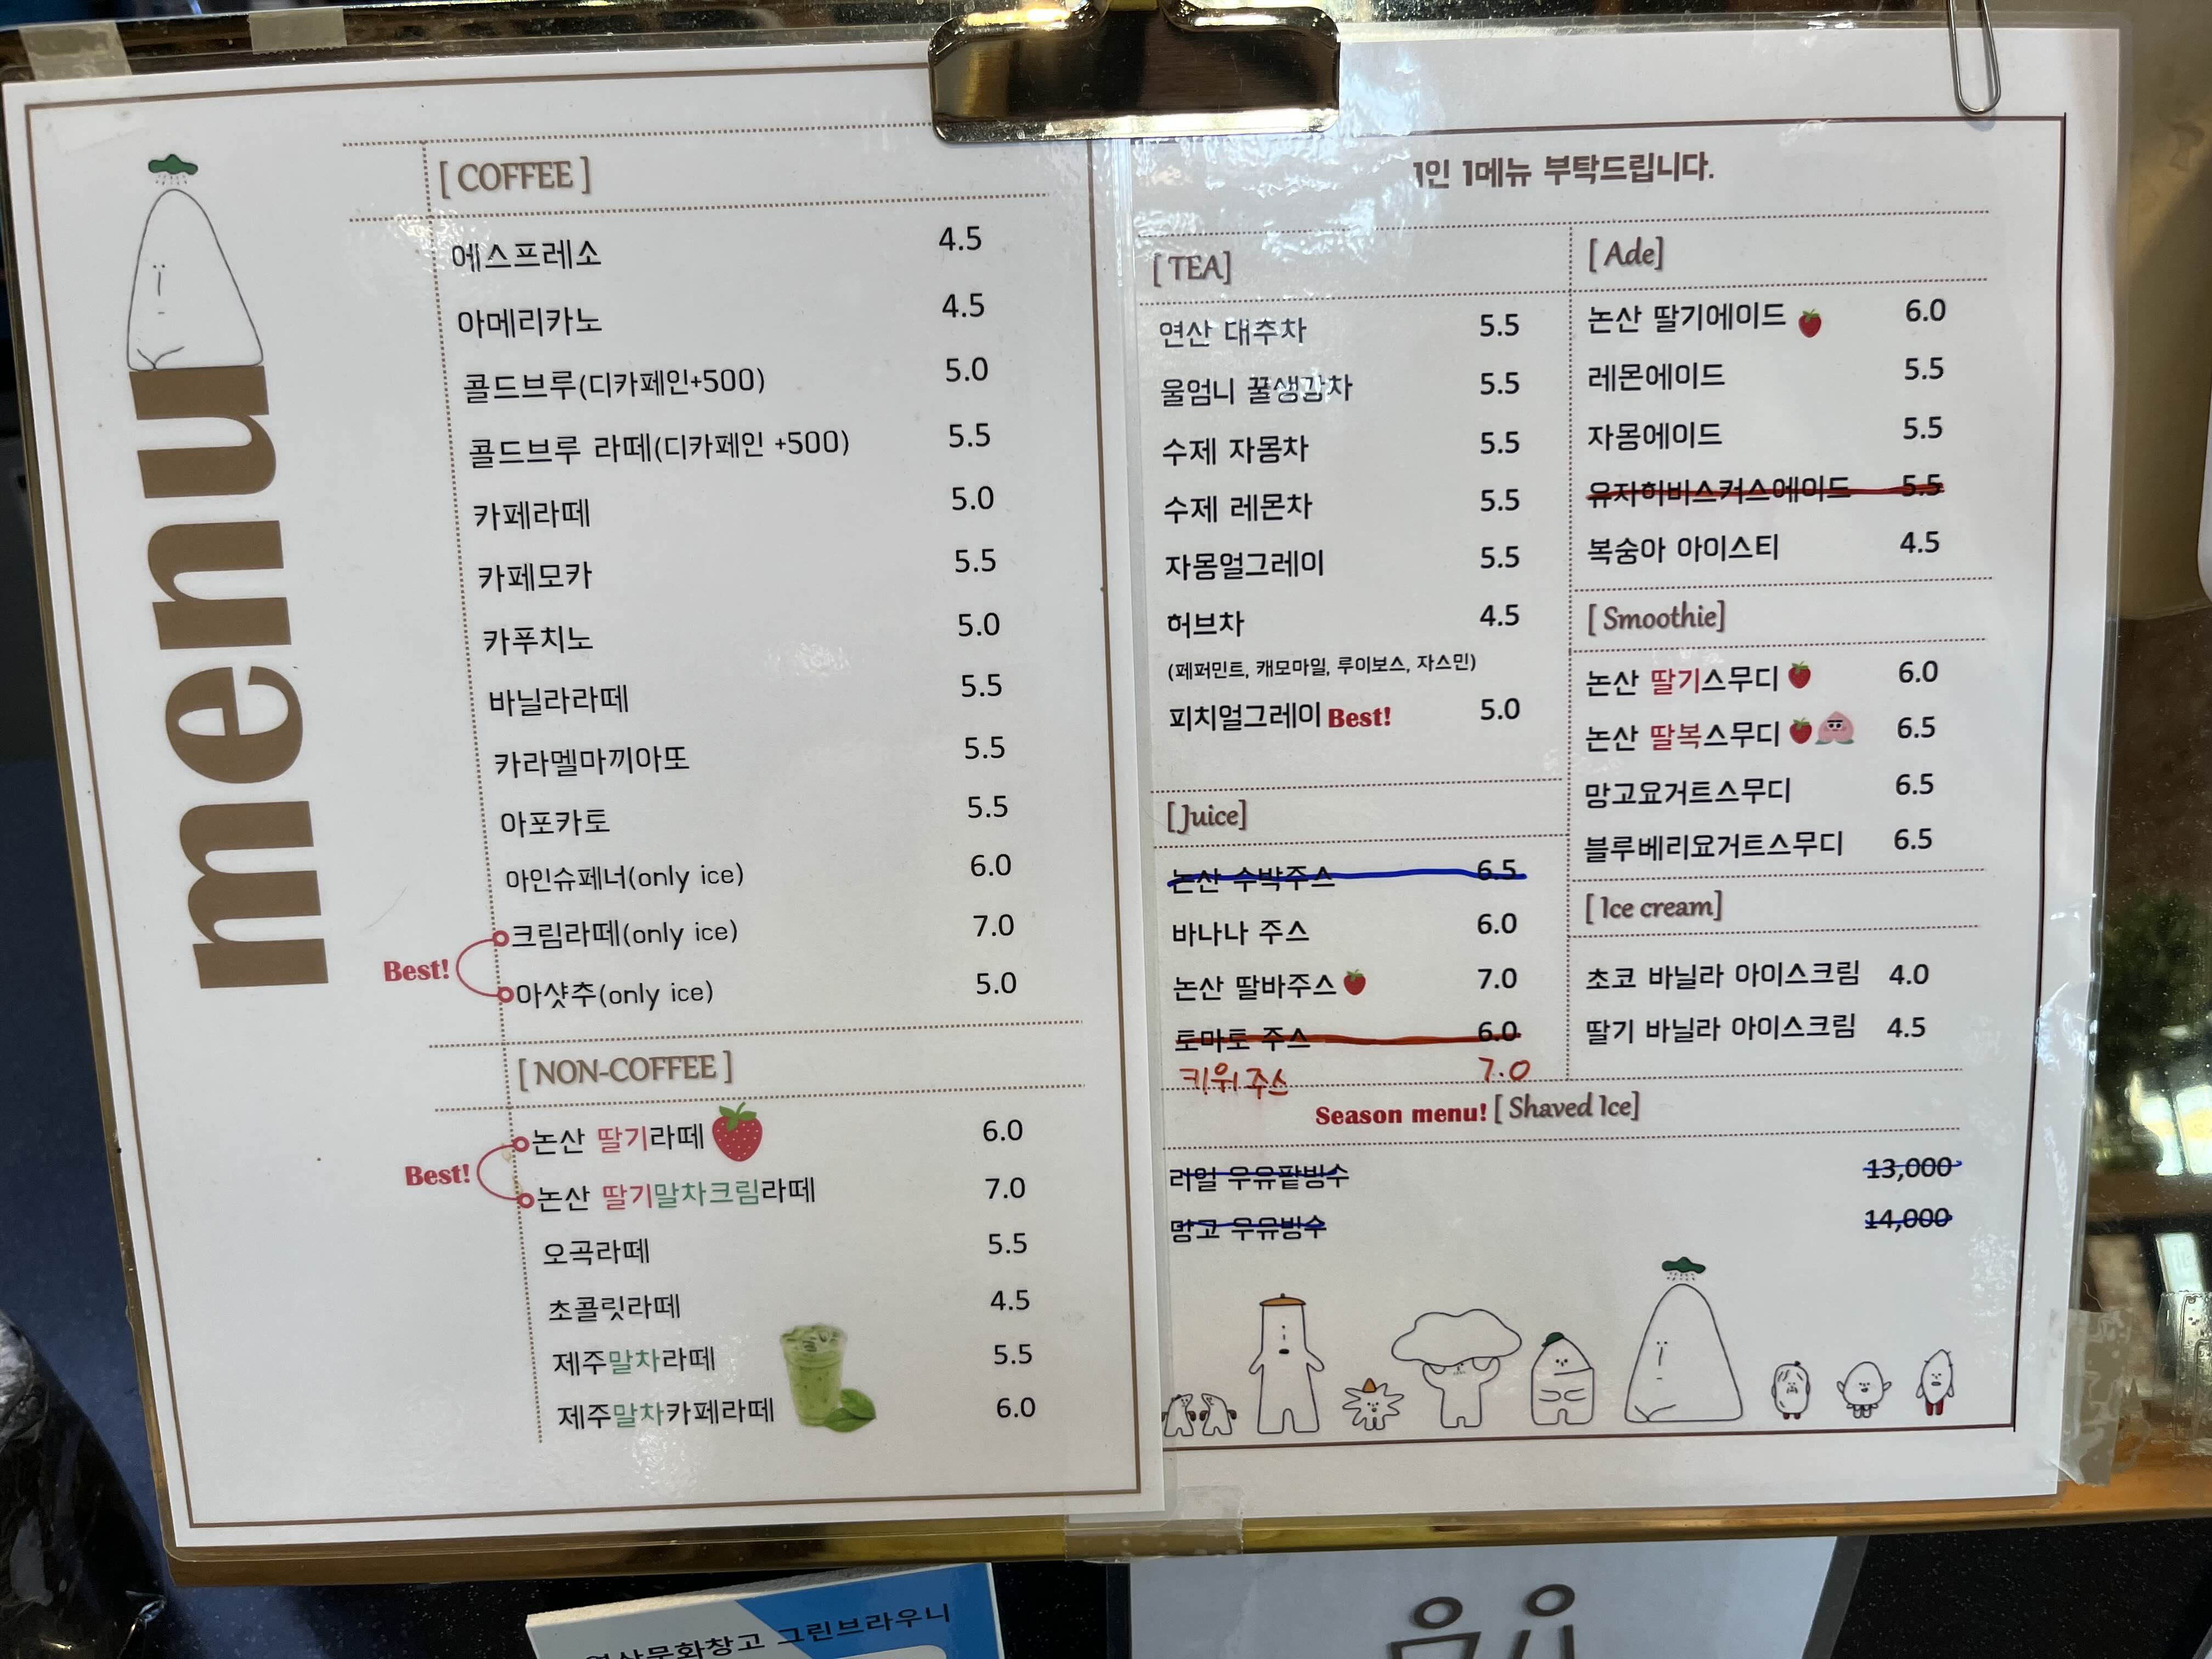 menu
[ COFFEE ]
에스프레소 4.5
아메리카노 4.5
콜드브루(디카페인+500) 5.0
콜드브루 라떼(디카페인 +500) 5.5
카페라떼 5.0
카페모카 5.5
카푸치노 5.0
바닐라라떼 5.5
카라멜마끼아또 5.5
아포카토 5.5
아인슈페너(only ice) 6.0
크림라떼(only ice) 7.0
Best!
아샷추(only ice) 5.0
[ NON-COFFEE ]
논산 딸기라떼 6.0
Best!
논산 딸기말차크림라떼 7.0
오곡라떼 5.5
초콜릿라떼 4.5
제주말차라떼 5.5
제주말차카페라떼 6.0
1인 1메뉴 부탁드립니다.
[ TEA]
연산 대추차 5.5
울엄니 꿀생강차 5.5
수제 자몽차 5.5
수제 레몬차 5.5
자몽얼그레이 5.5
허브차 4.5
(페퍼민트, 캐모마일, 루이보스, 자스민)
피치얼그레이 Best! 5.0
[Juice]
논산 수박주스 6.5
바나나 주스 6.0
논산 딸바주스 7.0
토마토 주스 6.0
키위주스 7.0
[ Ade]
논산 딸기에이드 6.0
레몬에이드 5.5
자몽에이드 5.5
유자히비스커스에이드 5.5
복숭아 아이스티 4.5
[ Smoothie]
논산 딸기스무디 6.0
논산 딸복스무디 6.5
망고요거트스무디 6.5
블루베리요거트스무디 6.5
[ Ice cream]
초코 바닐라 아이스크림 4.0
딸기 바닐라 아이스크림 4.5
Season menu! [ Shaved Ice]
리얼 우유팥빙수 13,000
망고 우유빙수 14,000
그린브라우니